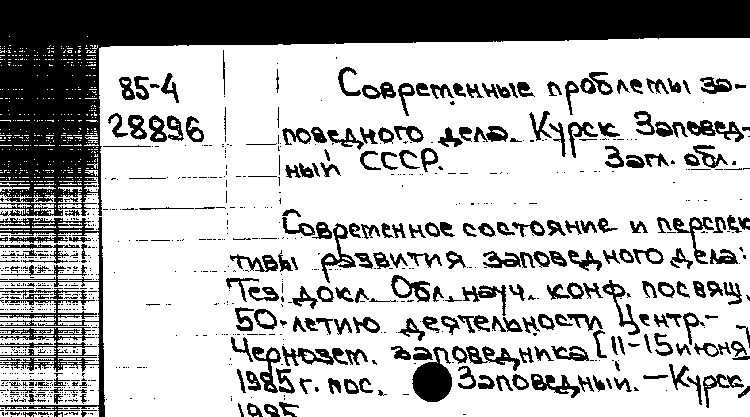 85-4
28896
Современные проблемы за-
поведного дела. Курск Заповед-
ный СССР.
Загл. обл.
Современное состояние и перспек
тивы развития заповедного дела:
Тез. докл. Обл. науч. конф. посвящ.
50-летию деятельности Центр.-
Чернозем. заповедника [11-15 июня]
1985 г. пос. Заповедный. — Курск,
1985